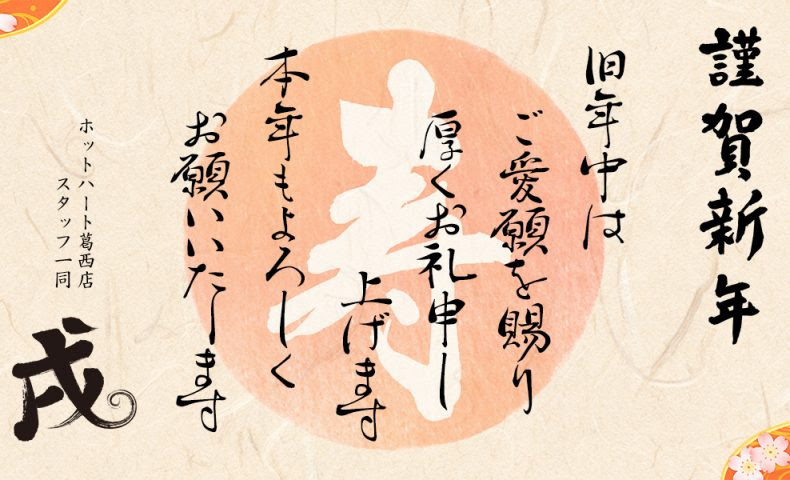 謹賀新年
旧年中は
ご愛願を賜り
厚くお礼申し
上げます
本年もよろしく
お願いいたします
寿
ホットハート葛西店
スタッフ一同
戌